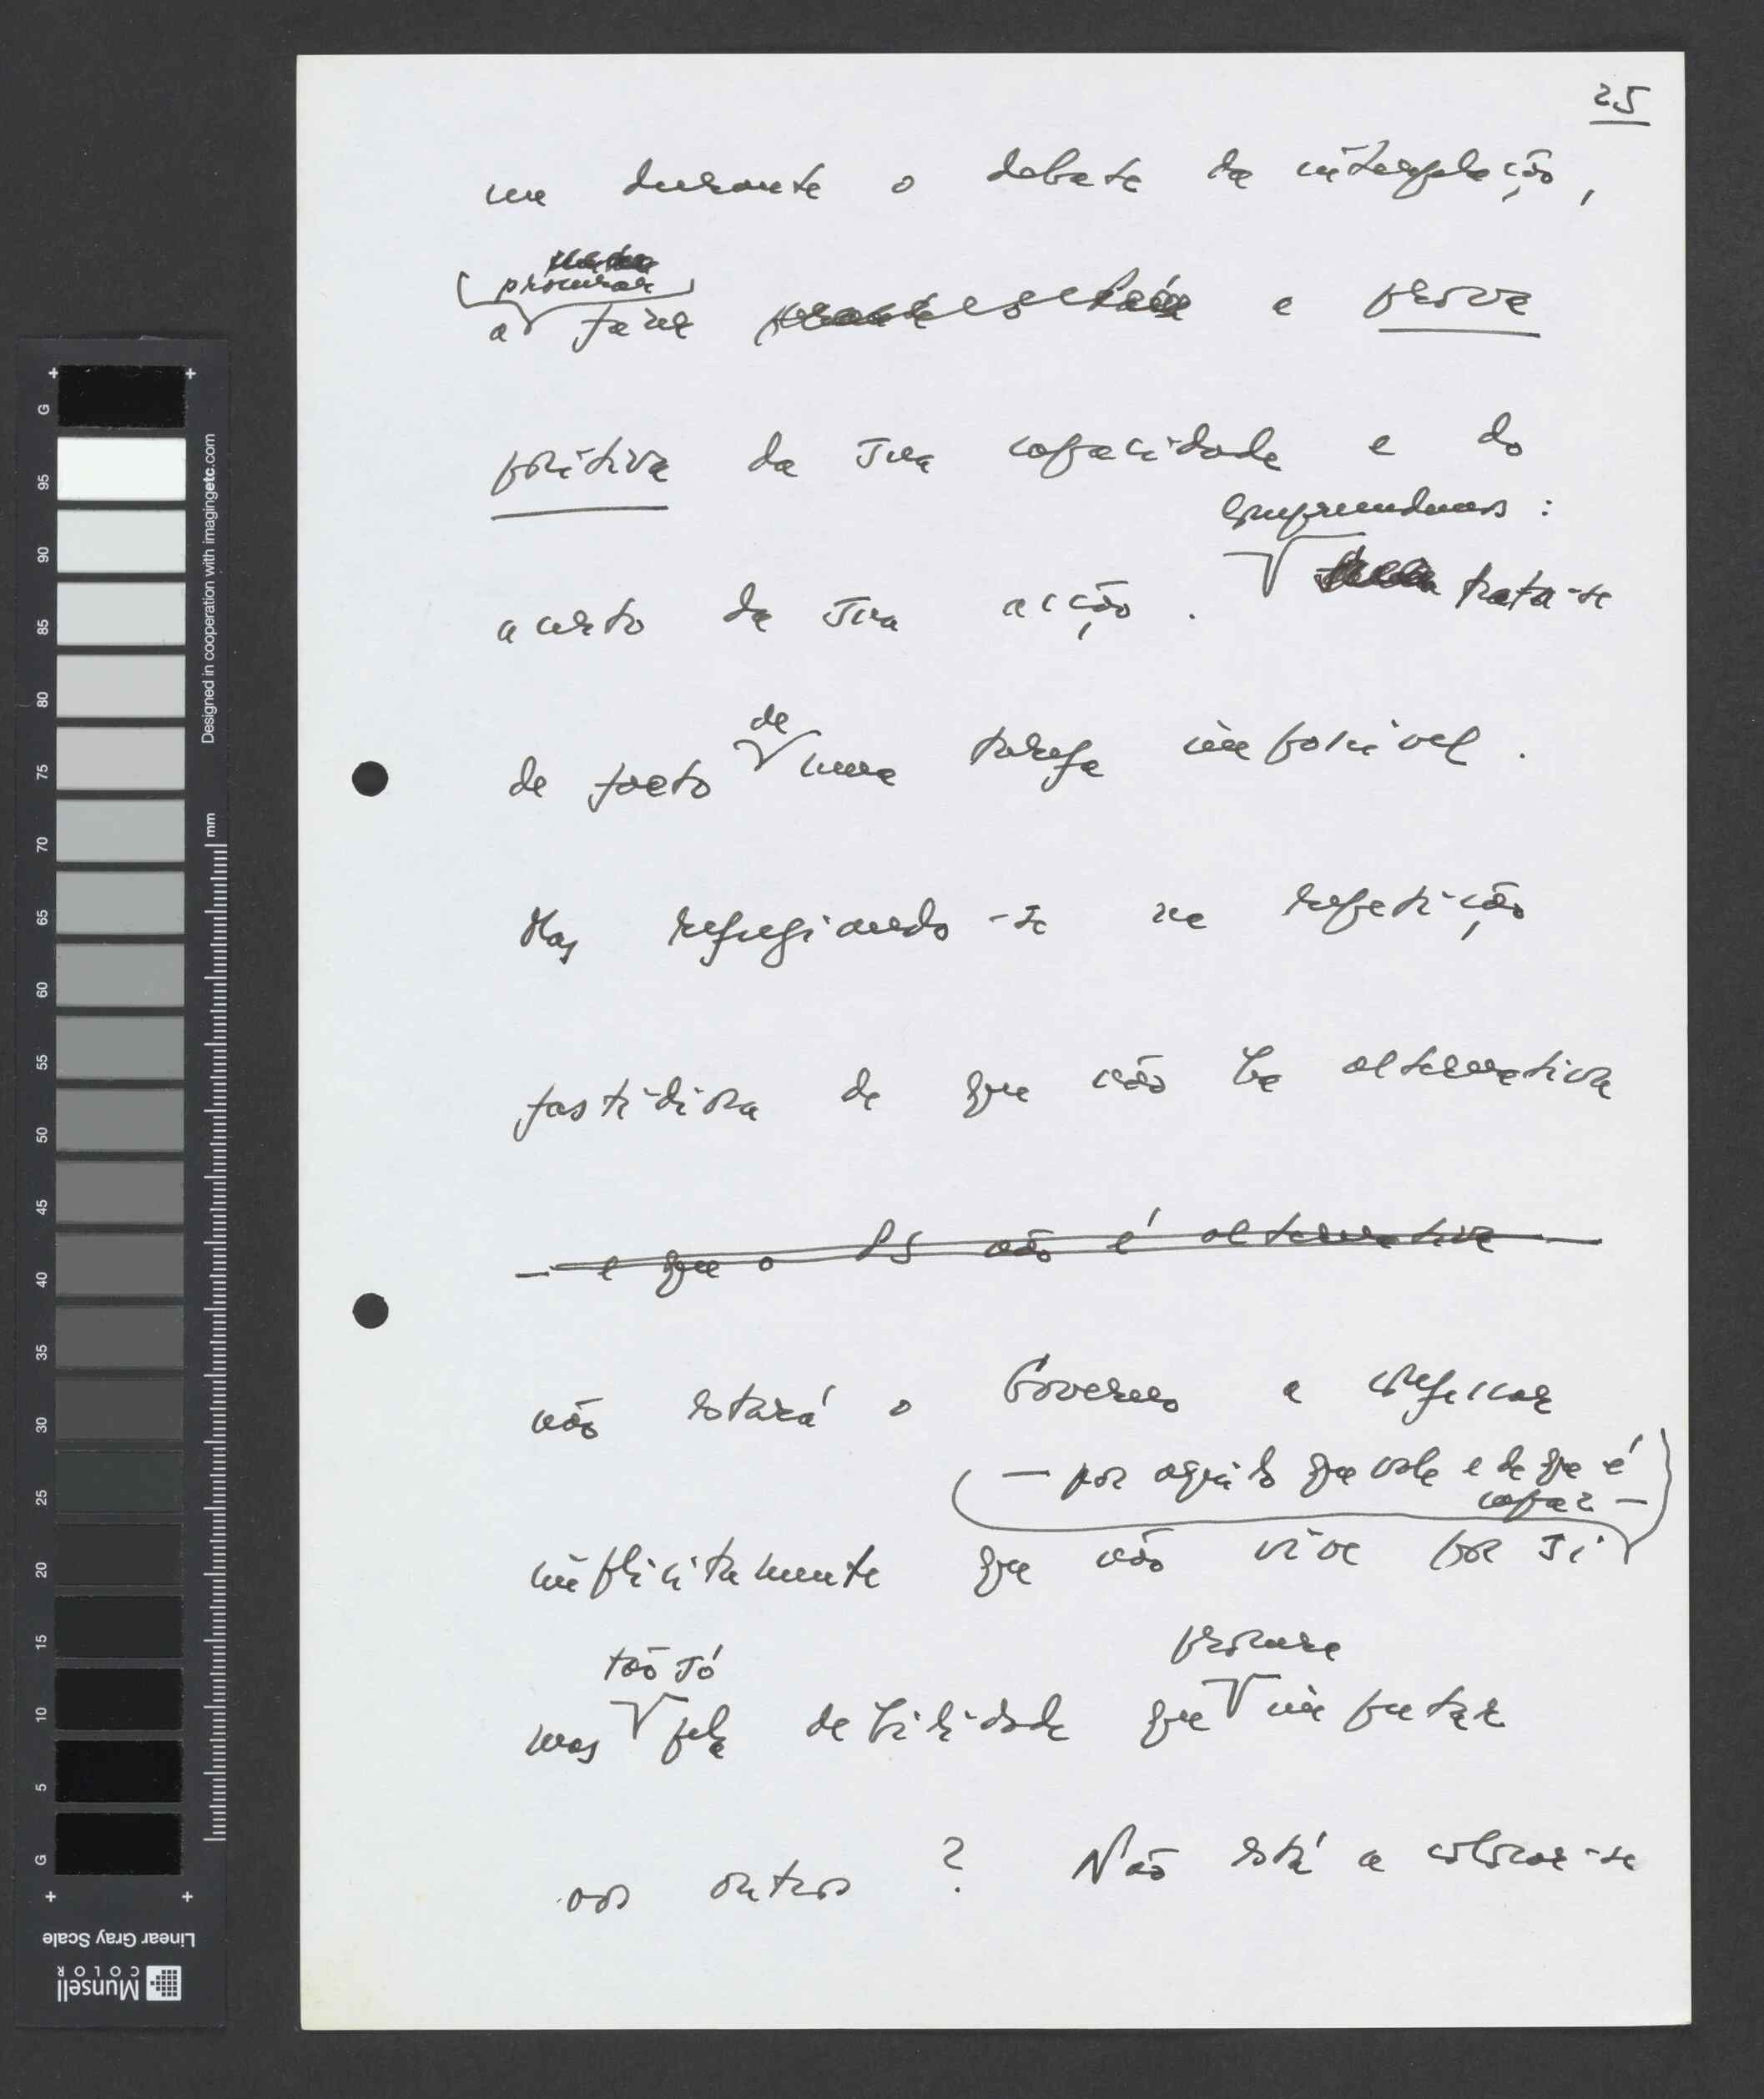 25
me durante o debate da interpelação,
procurar
a fazer a prova
positiva da sua capacidade e do
Compreendemos :
acerto da sua acção . trata-se
de
de facto uma tarefa impossível .
Mas refugiando-se na repetição
fastidiosa de que não há alternativa
— e que o PS não é alternativa —
não estará o Governo a confessar
— por aquilo que vale e de que é
capaz —
implicitamente que não vive por si
tão só procura
mas pela debilidade que imputar
aos outros ? Não está a colocar-se
G 95 90 85 80 75 70 65 60 55 50 45 40 35 30 25 20 15 10 5 G
Designed in cooperation with imagingetc.com
mm
Linear Gray Scale
Munsell
COLOR